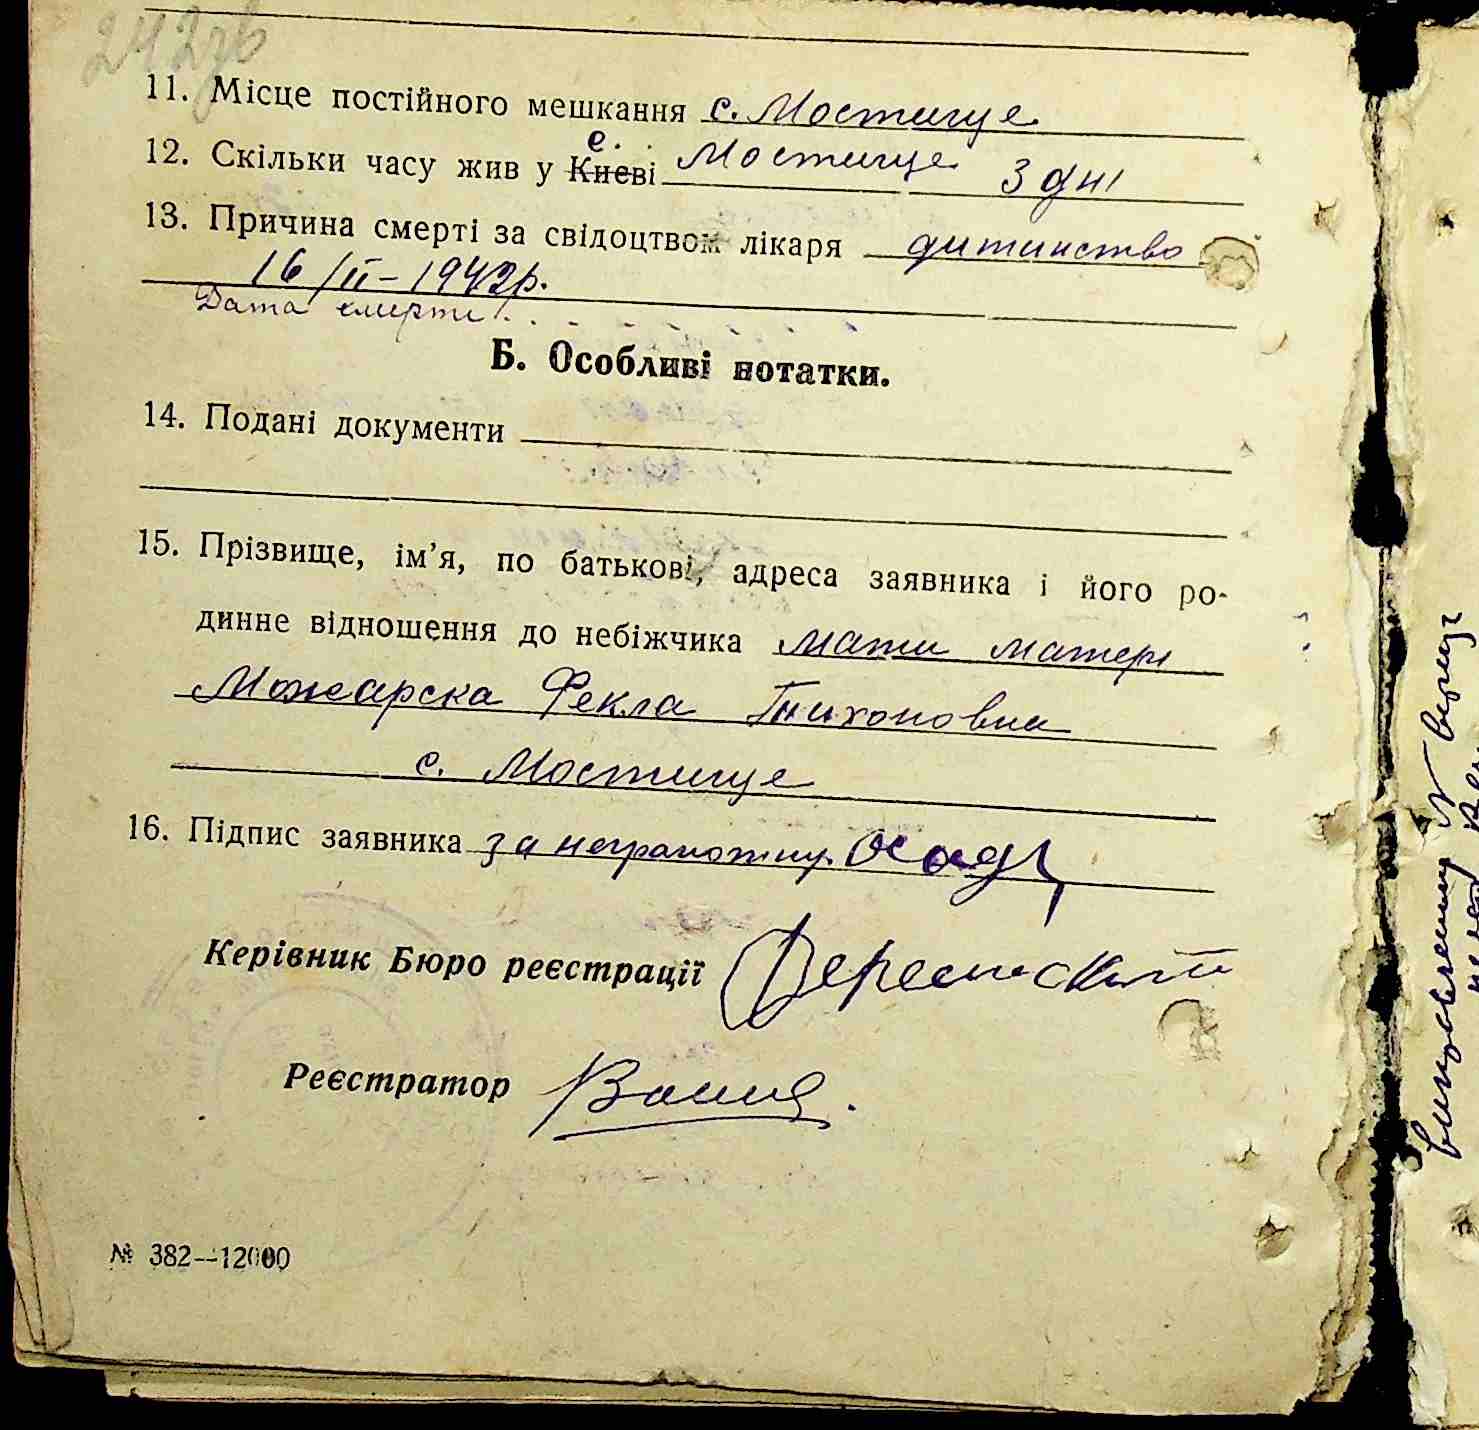 242зв
11. Місце постійного мешкання с. Мостище
12. Скільки часу жив у Києві с. Мостище 3 дні
13. Причина смерті за свідоцтвом лікаря дитинство
16/II-1942р.
Дата смерти
Б. Особливі нотатки.
14. Подані документи
15. Прізвище, ім’я, по батькові, адреса заявника і його ро-
динне відношення до небіжчика мати матері
Можарска Фекла Тихоновна
с. Мостище
16. Підпис заявника за неграмотну
Керівник Бюро реєстрації
Реєстратор
№ 382—12000